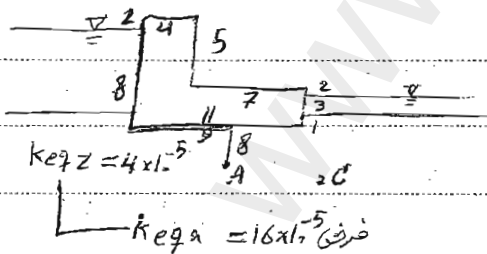 2
4
5
8
7
2
3
1
11
9
8
A
2C
keqz = 4×10⁻⁵
keqx = 16×10⁻⁵ فرض